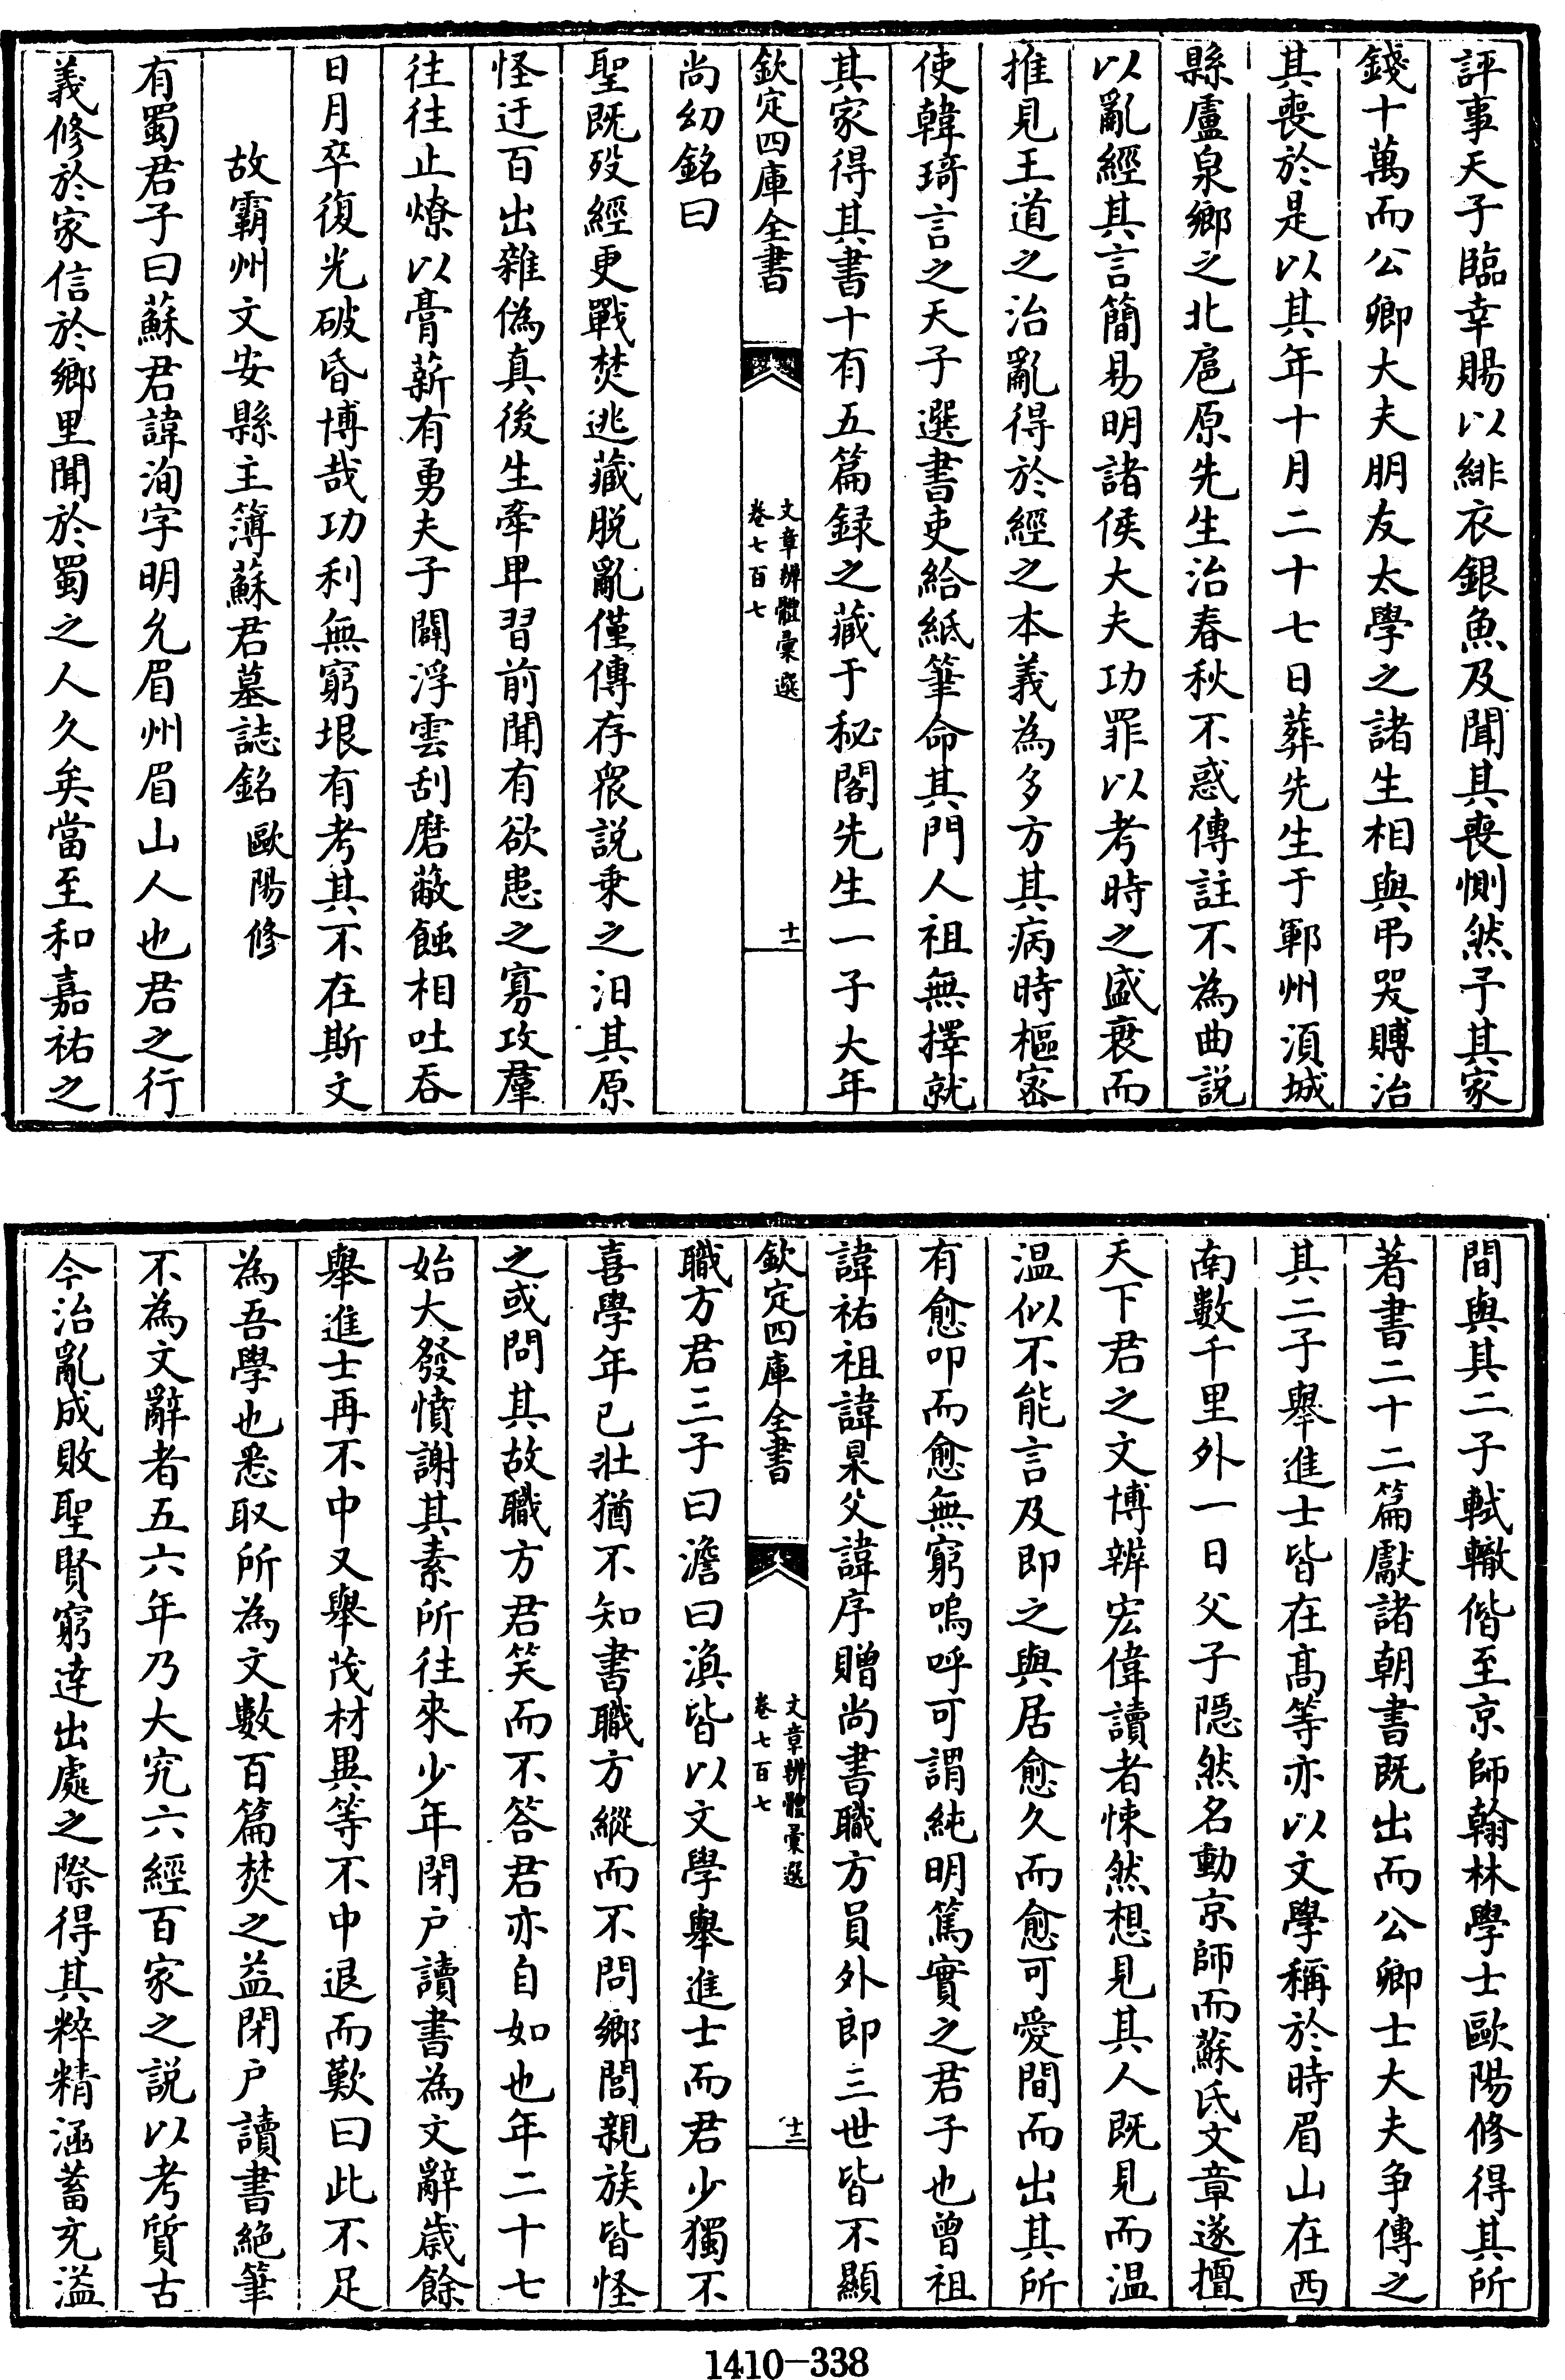 評事天子臨幸賜以緋衣銀魚及聞其喪惻然予其家
錢十萬而公卿大夫朋友太學之諸生相與弔哭賻治
其喪於是以其年十月二十七日葬先生于鄆州湏城
縣盧泉鄉之北扈原先生治春秋不惑傳註不為曲説
以亂經其言簡易明諸侯大夫功罪以考時之盛衰而
推見王道之治亂得於經之本義為多方其病時樞宻
使韓琦言之天子選書吏給紙筆命其門人祖無擇就
其家得其書十有五篇録之藏于秘閣先生一子大年
欽定四庫全書
文章辨體彙選
卷七百七
十一
尚幼銘曰
聖既歿經更戰焚逃藏脱亂僅傳存衆説乗之汨其原
怪迂百出雜偽真後生牽卑習前聞有欲患之寡攻羣
往往止燎以膏薪有勇夫子闢浮雲刮磨蔽蝕相吐吞
日月卒復光破昏博哉功利無窮垠有考其不在斯文
故霸州文安縣主簿蘇君墓誌銘 歐陽修
有蜀君子曰蘇君諱洵字明允眉州眉山人也君之行
義修於家信於鄉里聞於蜀之人久矣當至和嘉祐之
間與其二子軾轍偕至京師翰林學士歐陽修得其所
著書二十二篇獻諸朝書既出而公卿士大夫争傳之
其二子舉進士皆在髙等亦以文學稱於時眉山在西
南數千里外一日父子隠然名動京師而蘇氏文章遂擅
天下君之文博辨宏偉讀者悚然想見其人既見而温
温似不能言及即之與居愈久而愈可愛間而出其所
有愈叩而愈無窮嗚呼可謂純明篤實之君子也曾祖
諱祐祖諱杲父諱序贈尚書職方員外郎三世皆不顯
欽定四庫全書
文章辨體彙選
卷七百七
十二
職方君三子曰澹曰渙皆以文學舉進士而君少獨不
喜學年已壯猶不知書職方縱而不問鄉閭親族皆怪
之或問其故職方君笑而不答君亦自如也年二十七
始大發憤謝其素所往來少年閉户讀書為文辭歲餘
舉進士再不中又舉茂材異等不中退而歎曰此不足
為吾學也悉取所為文數百篇焚之益閉户讀書絶筆
不為文辭者五六年乃大究六經百家之説以考質古
今治亂成敗聖賢窮達出處之際得其粹精涵蓄充溢
1410-338